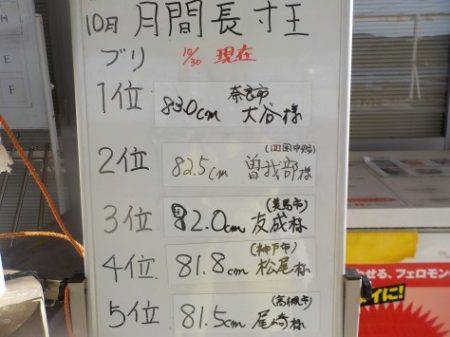 10月 月間長寸王
ブリ 10/30 現在
1位 83.0cm 奈良市 大谷様
2位 82.5cm (四国中央市) 曽我部様
3位 82.0cm (美馬市) 友成様
4位 81.8cm (神戸市) 松尾様
5位 81.5cm (高槻市) 尾崎様
せる、フェロモン
に!
E
F